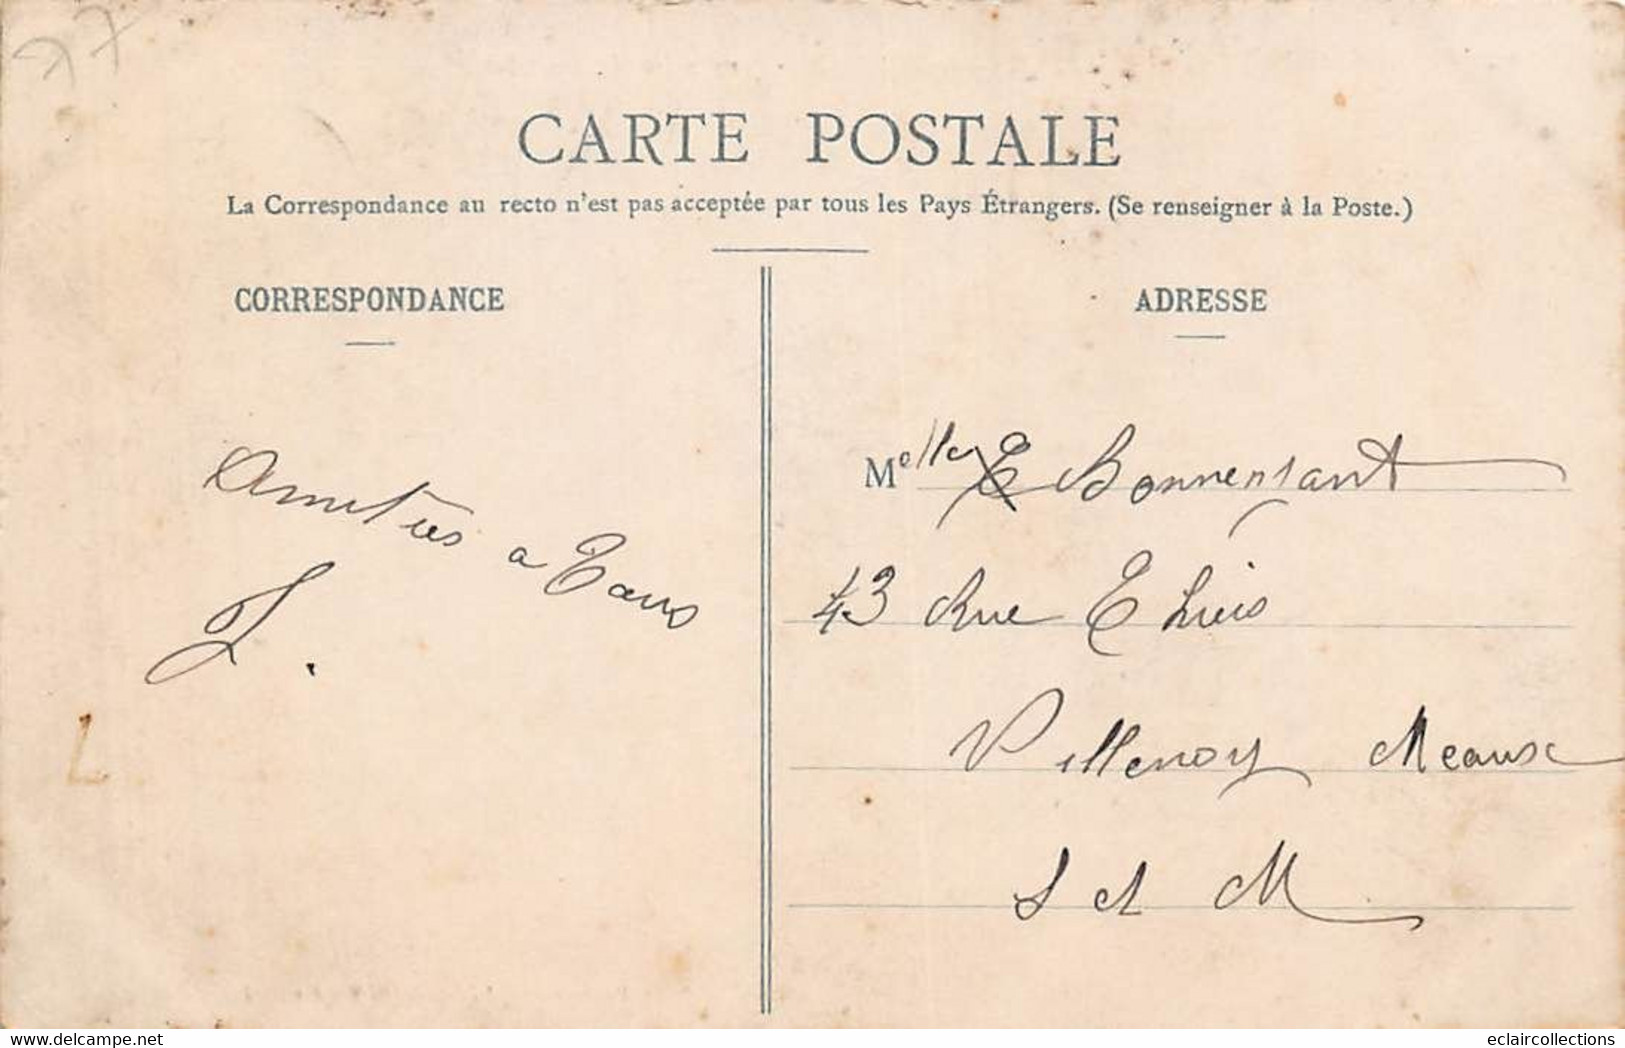 77
CARTE POSTALE
La Correspondance au recto n'est pas acceptée par tous les Pays Étrangers. (Se renseigner à la Poste.)
CORRESPONDANCE
ADRESSE
Amitiés a Tous
J.
L
Melle E Bonnensant
43 Rue Thiers
Villenoy Meaux
S et M
eclaircollections